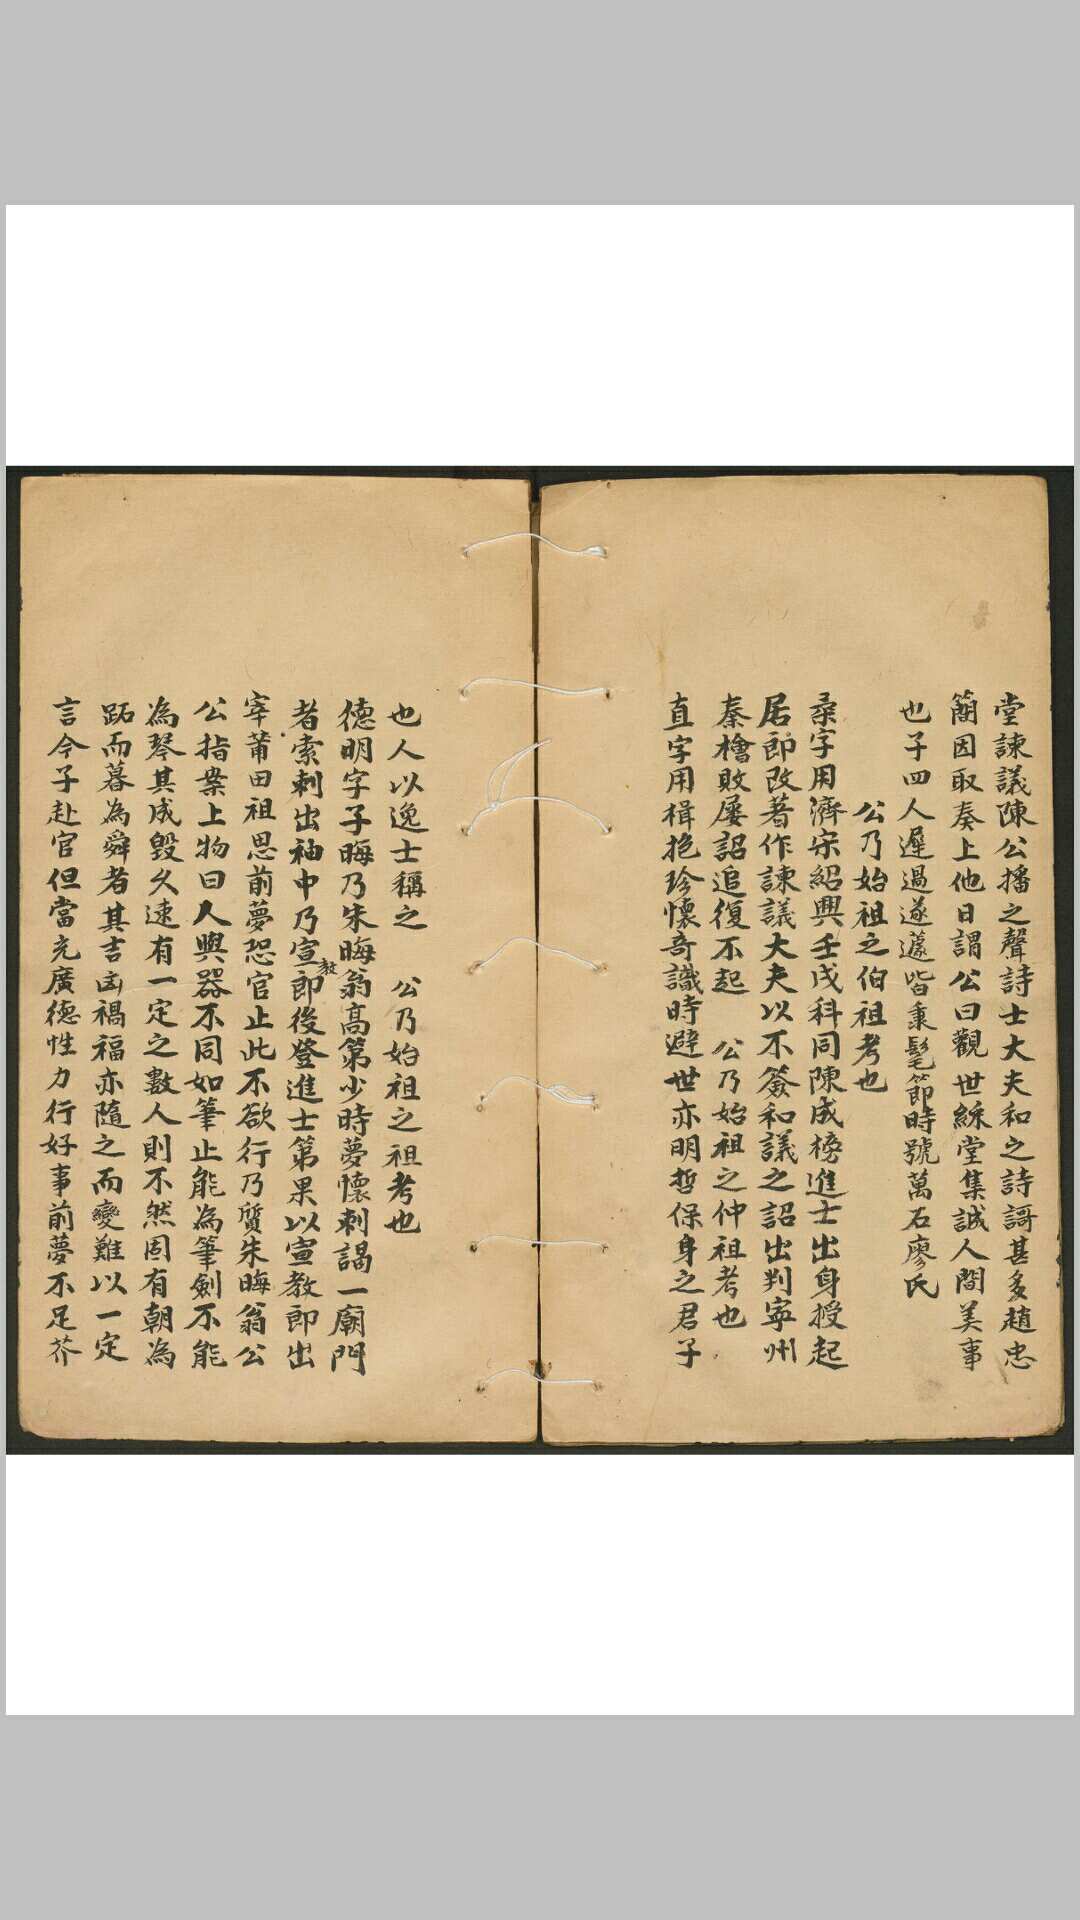 堂諫議陳公播之聲詩士大夫和之詩謌甚多趙忠
簡因取奏上他日謂公曰觀世綵堂集誠人間美事
也子四人遲過遂蘧皆秉髦節時號萬石廖氏
公乃始祖之伯祖考也
桑字用濟宋紹興壬戌科同陳成榜進士出身授起
居郎改著作諫議大夫以不簽和議之詔出判寧州
秦檜敗屢詔追復不起 公乃始祖之仲祖考也
直字用楫抱珍懷奇識時避世亦明哲保身之君子
也人以逸士稱之 公乃始祖之祖考也
德明字子晦乃朱晦翁高第少時夢懷刺謁一廟門
者索刺出袖中乃宣教郎後登進士第果以宣教郎出
宰莆田祖思前夢恐官止此不欲行乃質朱晦翁公
公指案上物曰人與器不同如筆止能為筆劍不能
為琴其成毀久速有一定之數人則不然固有朝為
跖而暮為舜者其吉凶禍福亦隨之而變難以一定
言今子赴官但當充廣德性力行好事前夢不足芥